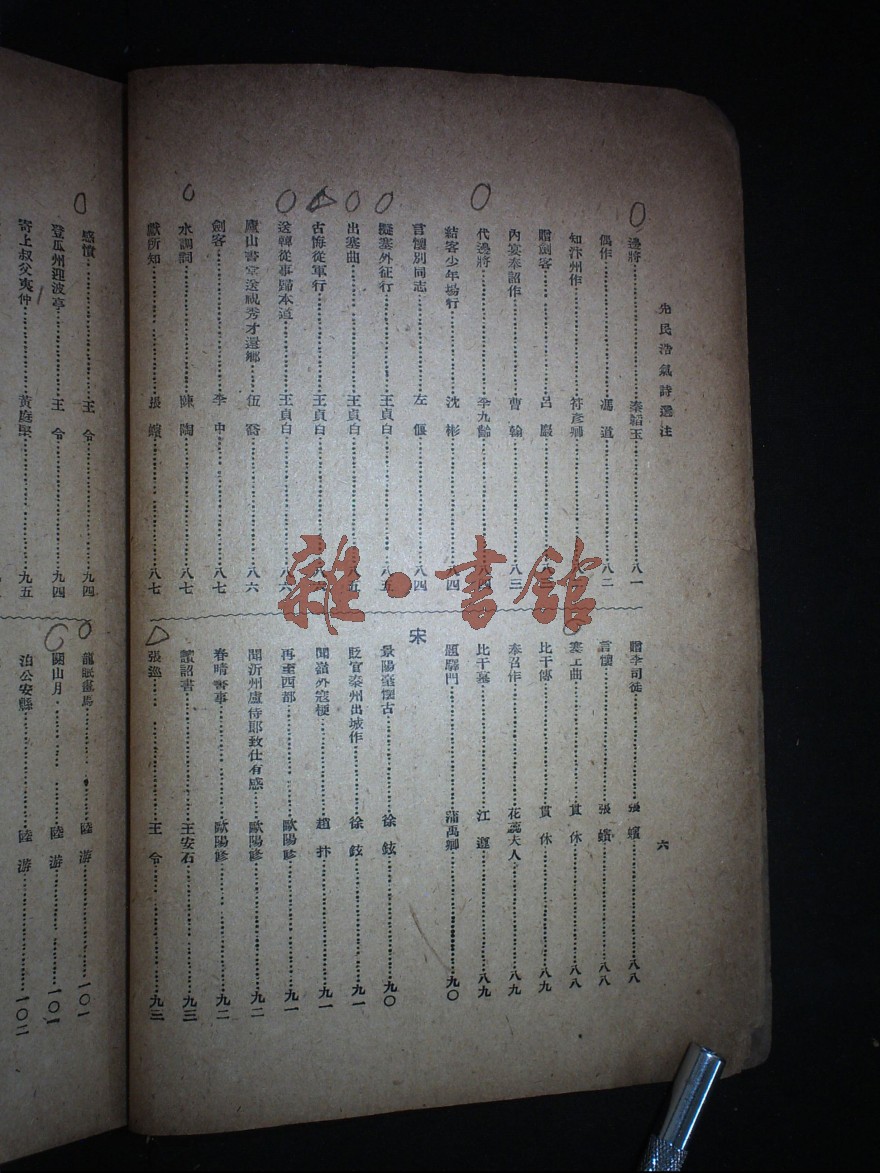 先民浩氣詩選注
六
邊將……秦韜玉……八一
偶作……馮道……八二
知汴州作……符彥卿
贈劍客……呂巖
內宴奉詔作……曹翰……八三
代邊將……李九齡……八四
結客少年場行……沈彬……八四
言懷別同志……左偃……八四
擬塞外征行……王貞白……八五
出塞曲……王貞白……八五
古悔從軍行……王貞白
送韓從事歸本道……王貞白……八六
廬山書堂送祝秀才還鄉……伍喬……八六
劍客……李中……八七
水調詞……陳陶……八七
獻所知……張蠙……八七
贈李司徒……張蠙……八八
言懷……張蠙……八八
塞上曲……貫休……八八
比干傳……貫休……八九
奉召作……花蕊夫人……八九
比干墓……江遝……八九
題驛門……蒲禹卿……九〇
宋
景陽臺懷古……徐鉉……九〇
貶官泰州出城作……徐鉉……九一
聞嶺外寇梗……趙抃……九一
再至西都……歐陽修……九一
聞沂州盧侍郎致仕有感……歐陽修……九二
春晴書事……歐陽修……九二
讀詔書……王安石……九三
張巡……王令……九三
感憤……王令……九四
登瓜州迎波亭……王令……九四
寄上叔父夷仲……黃庭堅……九五
龍眠畫馬……陸游……一〇一
關山月……陸游……一〇一
泊公安縣……陸游……一〇二
雜·書館